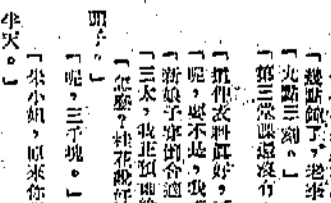 「幾點鐘了，老李
「九點三刻。」
「第三堂課還沒有
「這件衣料真好，
「呢，要不是，我
「新娘子穿倒合適
「三太，我正預備
「怎麼？桂花說好
頭子。」
「呢，三千塊。」
「朱小姐，原來你
半天。」